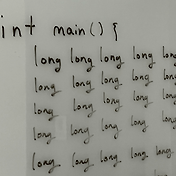 int main() {
long long long long long
long long long long long
long long long long long
long long long long long
long long long long long.